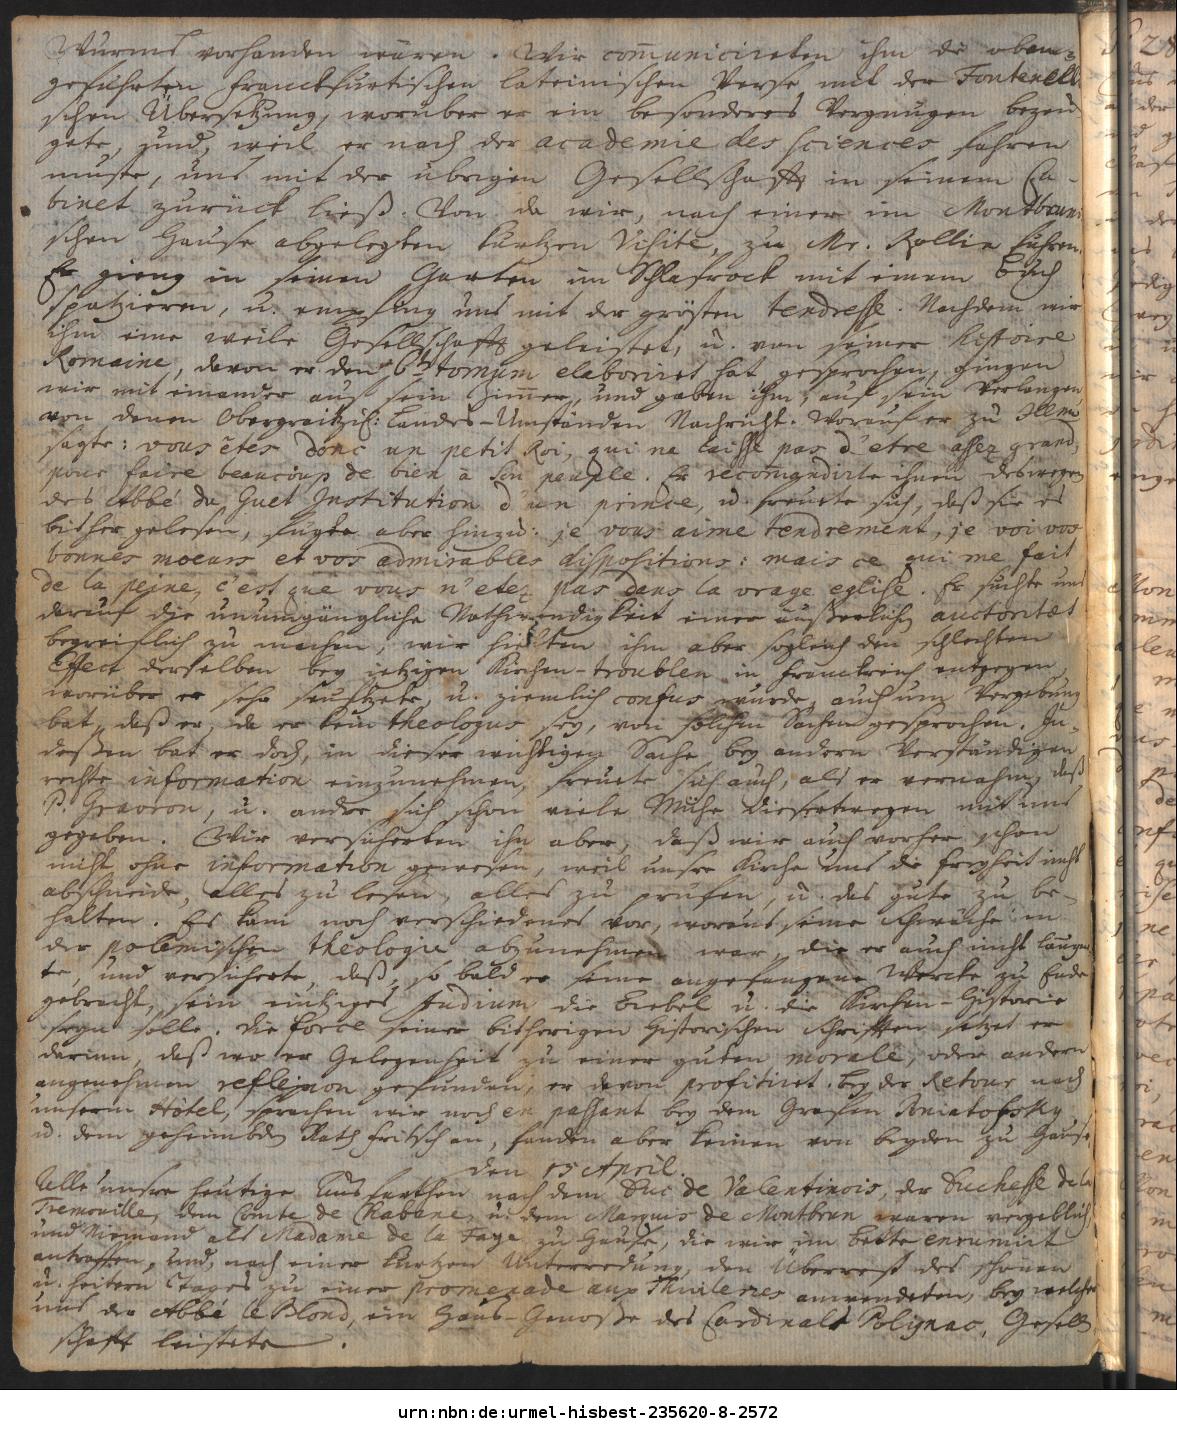 Wurms vorhanden wären. Wir com̄unicireten ihm die oben-
geführten Franckfurtischen lateinischen Verse mit der Fontenelli-
schen Übersetzung, worüber er ein besonderes Vergnügen bezeu-
gete, und, weil er nach der academie des sciences fahren
muste, uns mit der übrigen Gesellschafft in seinem Ca-
binet zurück ließ. Von da wir, nach einer im Montbruni-
schen Hause abgelegten kurtzen Visite, zu Mr. Rollin fuhren.
Er gieng in seinen Garten im Schlafrock mit einem Buch
spatzieren, u. empfing uns mit der grösten tendresse. Nachdem wir
ihm eine weile Gesellschafft geleistet, u. von seiner Histoire
Romaine, davon er den 6t tomum elaboriret hat, gesprochen, gingen
wir mit einander auf sein Zim̄er, und gaben ihm, auf sein Verlangen
von denen Obergraitzis: Landes-Umständen Nachricht. Worauf er zu Illmo
sagte: vous êtes donc un petit Roi, qui ne laisse pas d'etre assez grand,
pour faire beaucoup de bien à son peuple. Er recom̄endirte ihnen deswegen
des Abbé du Guet Institution d'un prince, u. freuete sich, daß sie es
bisher gelesen, fügte aber hinzu: je vous aime tendrement, je voi vos
bonnes moeurs et vos admirables dispositions: mais ce qui me fait
de la peine, c'est que vous n'etez pas dans la vraye eglise. Er suchte uns
darauf die unumgängliche Nothwendigkeit einer äußerlichen auctoritæt
begreiflich zu machen, wir hielten ihm aber sogleich den schlechten
Effect derselben bey jetzigen Kirchen-troublen in Franckreich entgegen,
worüber er sehr seufzete, u. ziemlich confus wurde, auch um Vergebung
bat, daß er, da er kein theologus sey, von solchen Sachen gesprochen. In-
deßen bat er doch, in dieser wichtigen Sache bey andern Verständigen
rechte information einzunehmen, freuete sich auch, als er vernahm, daß
P. Graveron, u. andre sich schon viele Mühe diesertwegen mit uns
gegeben. Wir versicherten ihn aber, daß wir auch vorher schon
nicht ohne information gewesen, weil unsre Kirche uns die Freyheit nicht
abschneide, alles zu lesen, alles zu prüfen, u. das gute zu be-
halten. Es kam noch verschiedenes vor, woraus seine Schwäche in
der polemischen theologie abzunehmen war, die er auch nicht laugne-
te, und versicherte, daß, so bald er seine angefangene Wercke zu Ende
gebracht, sein eintziges studium die Biebel u. die Kirchen-Historie
seyn solle. Die force seiner bisherigen Historischen Schrifften setzet er
darinn, daß wo er Gelegenheit zu einer guten morale, oder andern
angenehmen reflexion gefunden, er davon profitiret. Bey der Retour nach
unserm Hôtel, sprachen wir noch en passant bey dem Grafen Poniatofsky
u. dem geheimbden Rath Fritsch an, fanden aber keinen von beyden zu Hause.
den 15 April.
Alle unsre heutige Ausfarthen nach dem Duc de Valentinois, der Duchesse de la
Tremoville, dem Comte de Chabane, u. dem Marquis de Montbrun waren vergeblich,
und Niemand als Madame de la Faye zu Hause, die wir im Bette enrumirt
antraffen, und, nach einer kurtzen Unterredung, den Überrest des schönen
u. heitern Tages zu einer promenade aux Thuileries anwendeten, bey welcher
uns der Abbé le Blond, ein Haus-Genoße des Cardinals Polignac, Gesell-
schafft leistete.
urn:nbn:de:urmel-hisbest-235620-8-2572